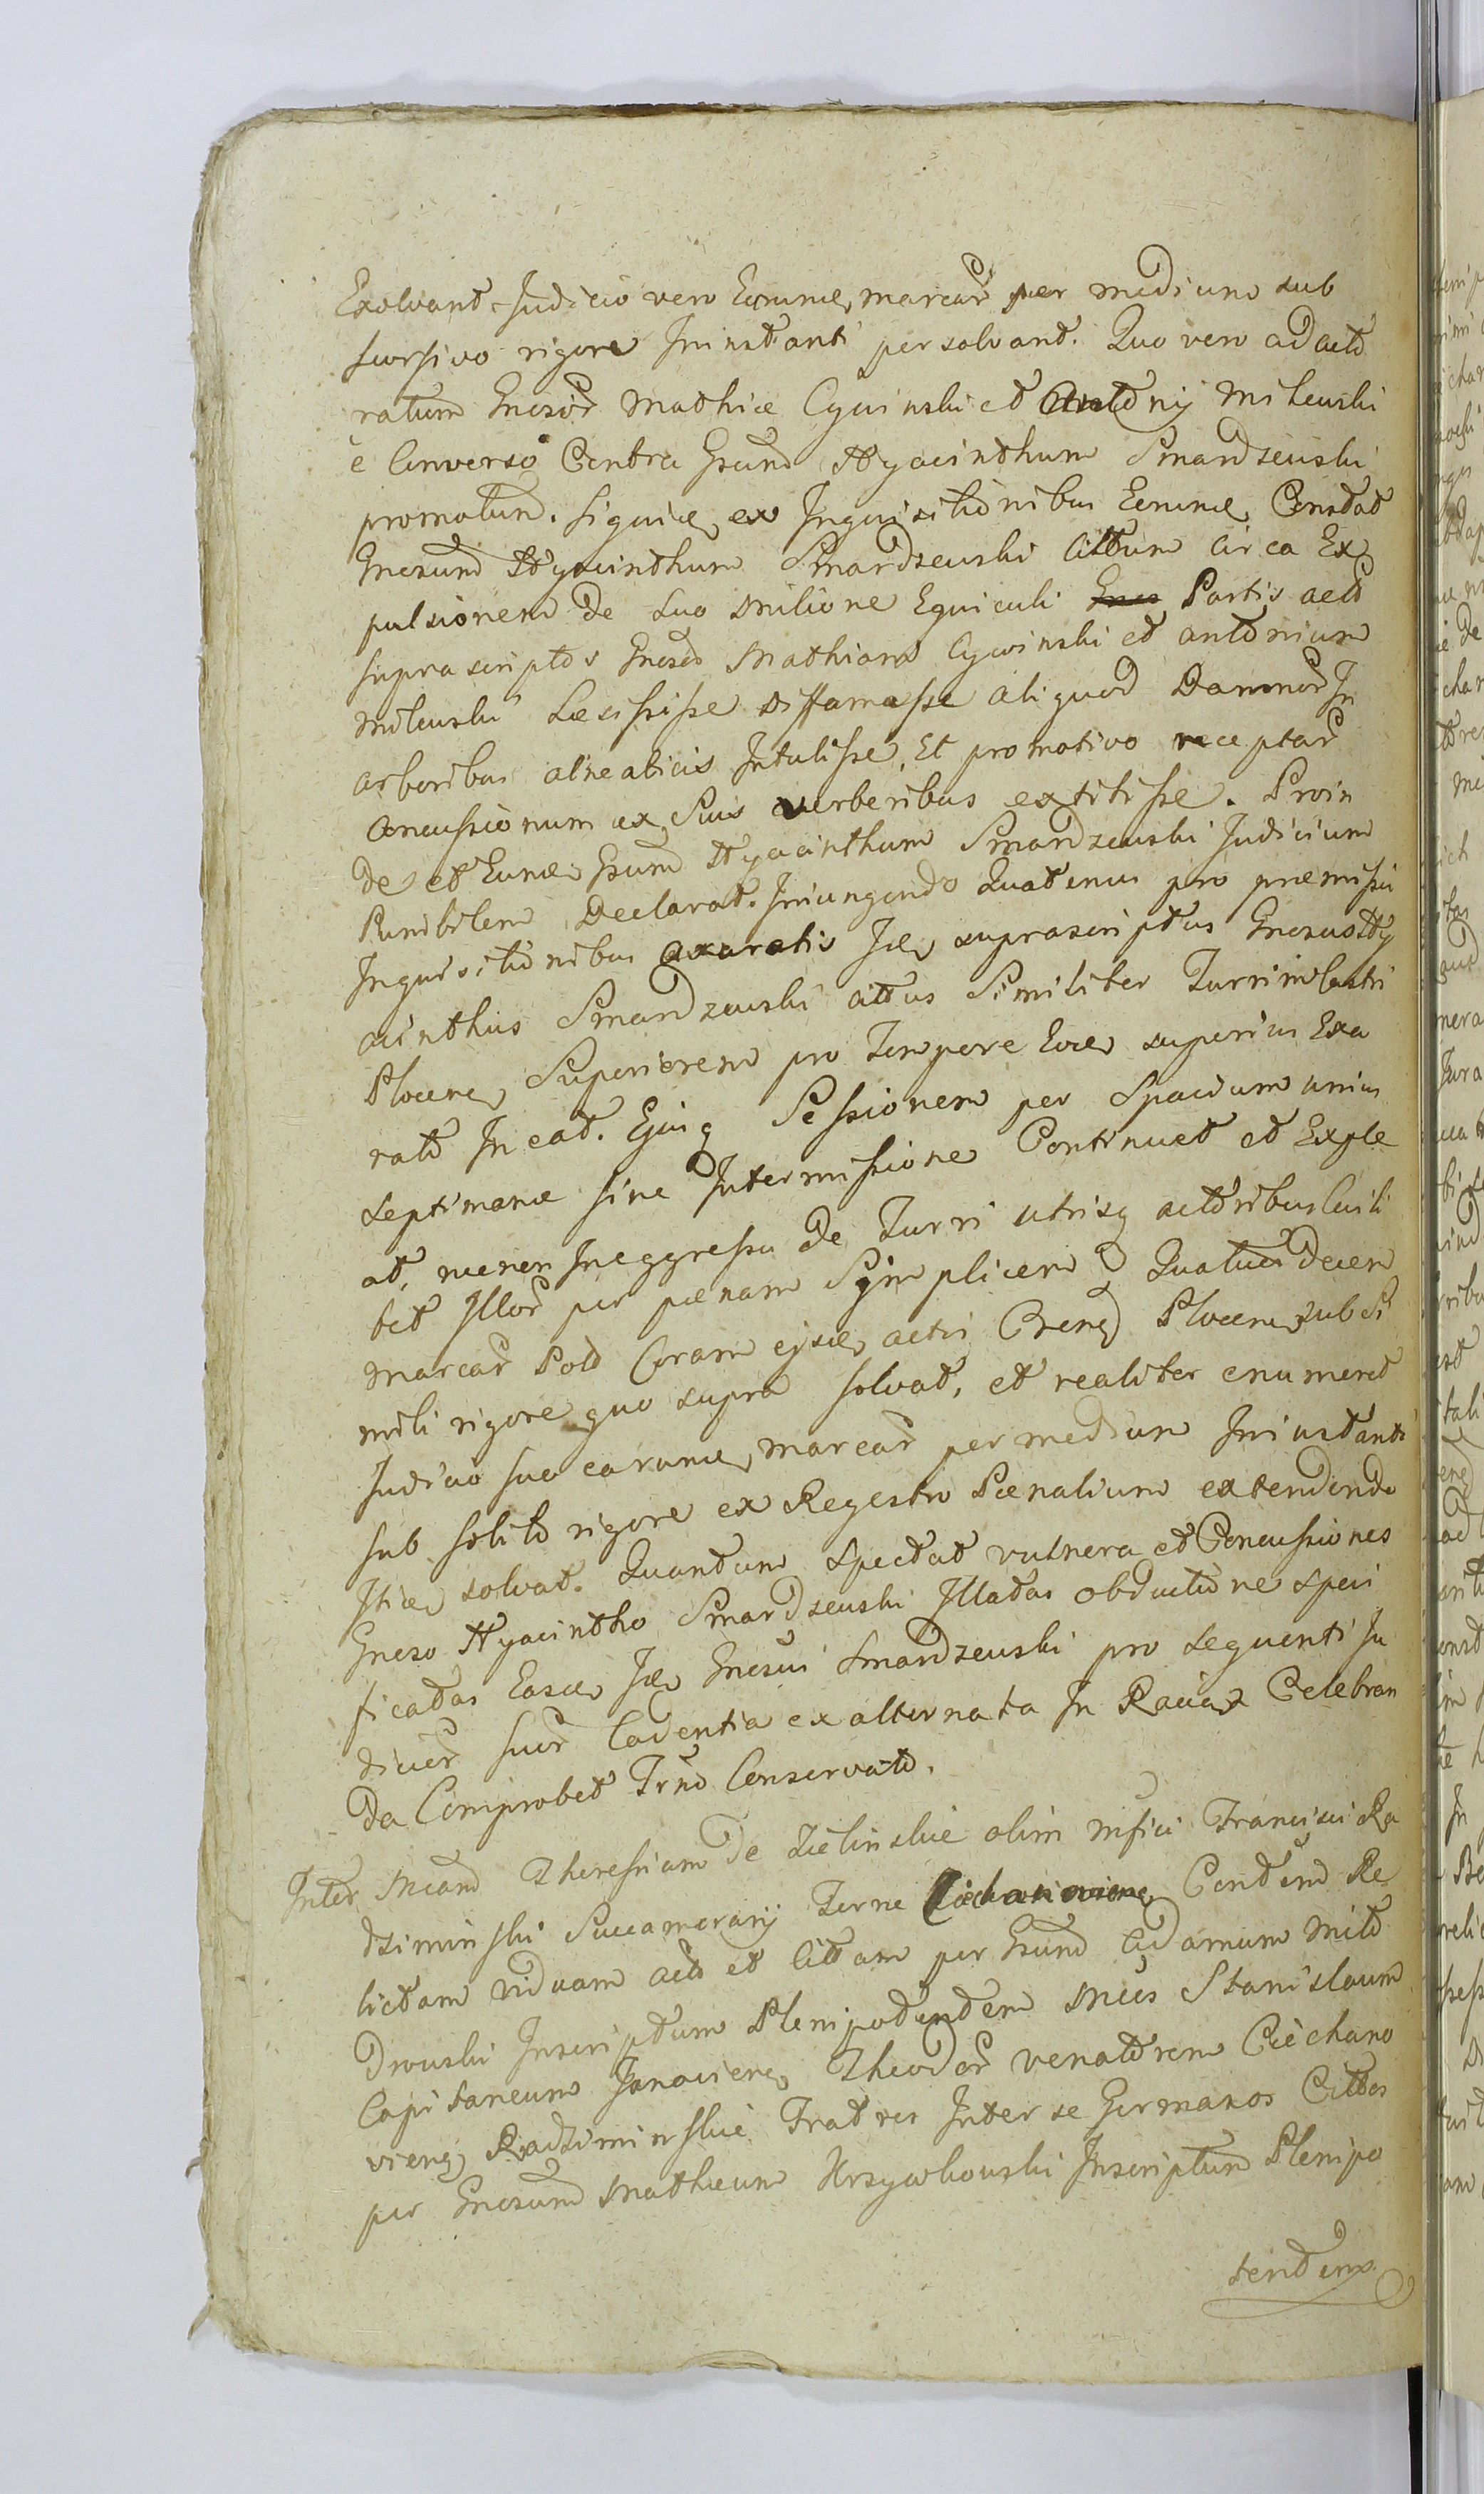 Exolvant Judicio vero Earume marcar per medium sub
scorsivo rigore Ininstanti persolvant. Quo vero ad acto
ratum Gnesor Mathiæ Cywinski et Antonij Milewski
è Converso Contra Gsum Hyacinthum Smardzewski
promotum. Siquidem ex Inquisitionibus Earume Constat
Gnesum Hyacinthum Smardzewski Cittum circa Ex
pulsionem de suo Milione Equiculi Partis acto
suprascriptos Gnesos Mathiam Cywinski et Antonium
Milewski Læcississe Diffamasse aliquod Damnor In
arboribus alneaticis Intulisse, Et promotivo receptar
Concussionum ex Suis verberibus extitisse. Proin
de et Eume Gsum Hyacinthum Smardzewski Judicium
Punibilem Declarat. Iniungendo Quatenus pro præmissis
Inquisitionibus exaratis Ide suprascriptus Gnesus Hy
acinthus Smardzewski Cittus Similiter Turrim Castri
Plocene Superiorem pro Tempore Eoce superius Exa
rato Ineat. Ejusq Sessionem per Spacium unius
septimanæ sine Intermissione Continuet et Exple
at, nec non Ineggressu de Turri utrisq actoribus Cuili
bet Illor per pænam Symplicem Quatuordecem
marcar Pold Coram ejsde actis Prens Plocens sub Si
mili rigore quo supra solvat, et realiter enumeret
Judicio suo earume, marcar per medium Iniustanti
sub solito rigore ex Regestro Pænalium extendendo
Itide solvat. Quantum spectat vulnera et Concussiones
Gneso Hyacintho Smardzewski Illatas obductione speci
ficatas Easde Ide Gnesus Smardzewski pro sequenti Ju
dicior suor Cadentia ex alternata In Raciąż Celebran
da Comprobet Trno Conservato.
Inter Mcam Theressiam de Zielinskie olim Mfici Francisci Ra
dziminski Succamerarij Terræ Ciechanoviens Consortem Re
lictam viduam acto et Cittam per Gsum Adamum Milo
drowski Inscriptum Plenipotentem Mcos Stanislaum
Capitaneum Janoviens, Theodor venatorem Ciechano
viens Radziminskie Fratres Inter se Germanos Cittos
per Gnesum Mathæum Krzywkowski Inscriptum Plenipo
tentem